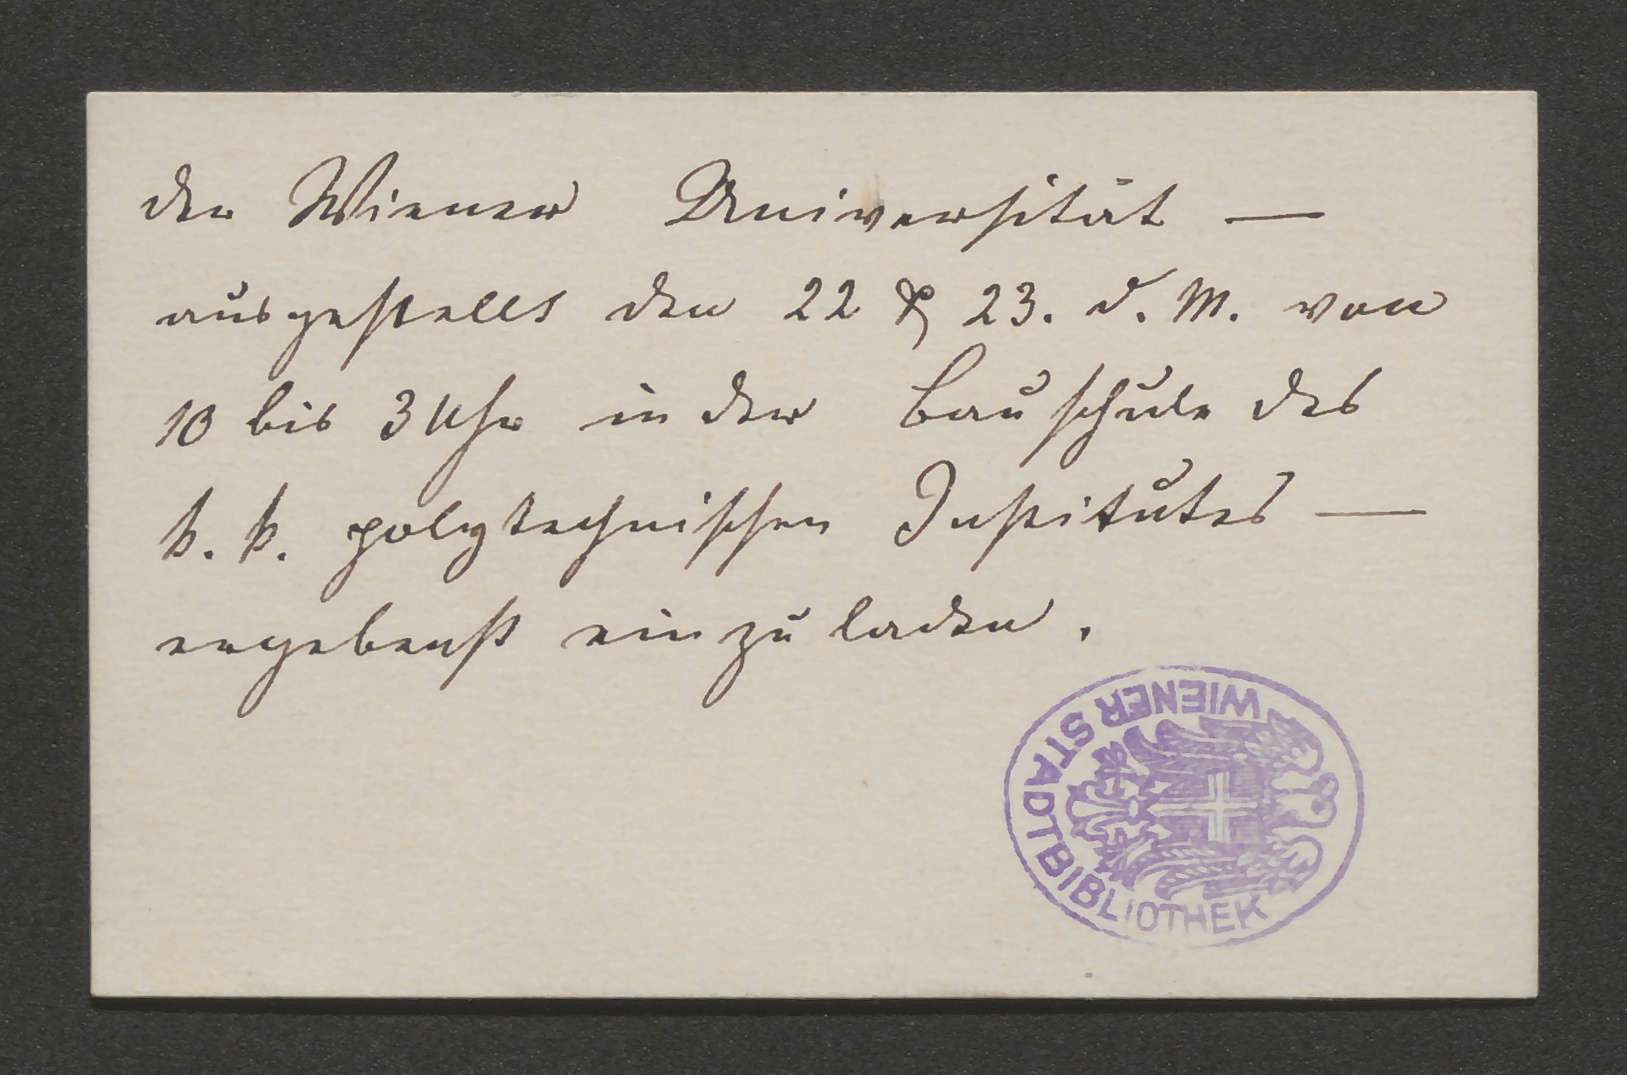 der Wiener Universität —
ausgestellt den 22 & 23. d. M. von
10 bis 3 Uhr in der Bauschule des
k. k. polytechnischen Institutes —
ergebenst einzuladen.
WIENER STADTBIBLIOTHEK